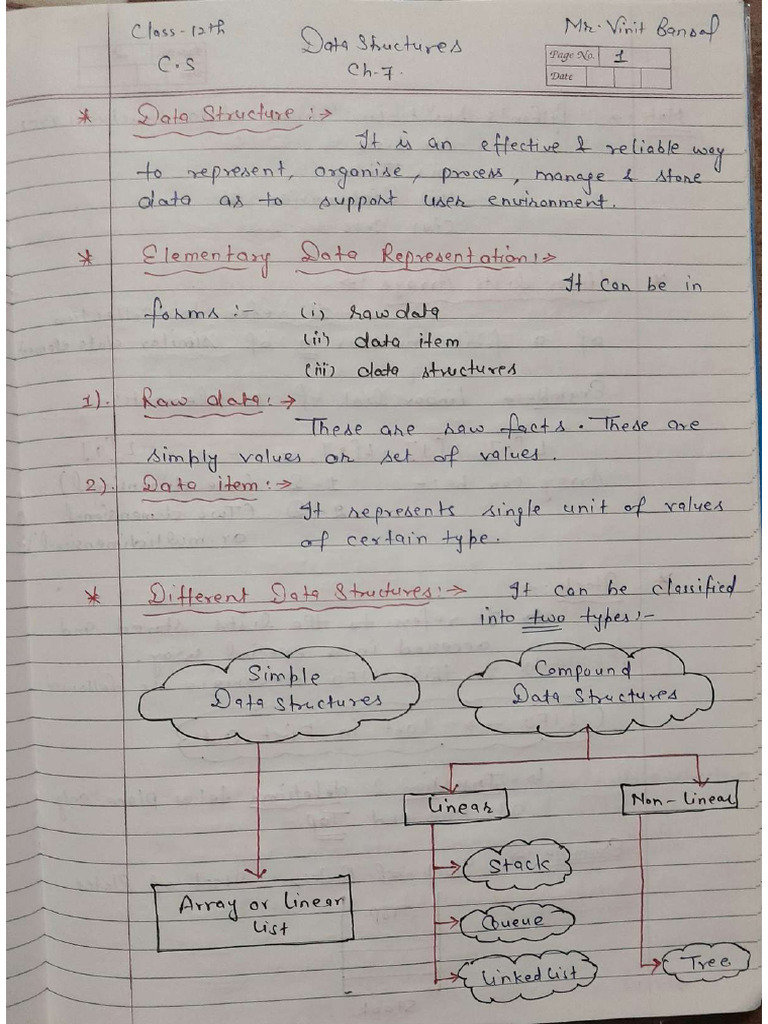 Class-12th
C.S
Data Structures
Ch-7.
Mr. Vinit Bansal
Page No. 1
Date
* Data Structure :→
It is an effective & reliable way
to represent, organise, process, manage & store
data as to support user environment.
* Elementary Data Representation :→
It can be in
forms :- (i) raw data
(ii) data item
(iii) data structures
1). Raw data :→
These are raw facts. These are
simply values or set of values.
2). Data item :→
It represents single unit of values
of certain type.
* Different Data Structures :→ It can be classified
into two types :-
Simple
Data Structures
Compound
Data Structures
Linear
Non-linear
Stack
Array or Linear
List
Queue
Linked List
Tree